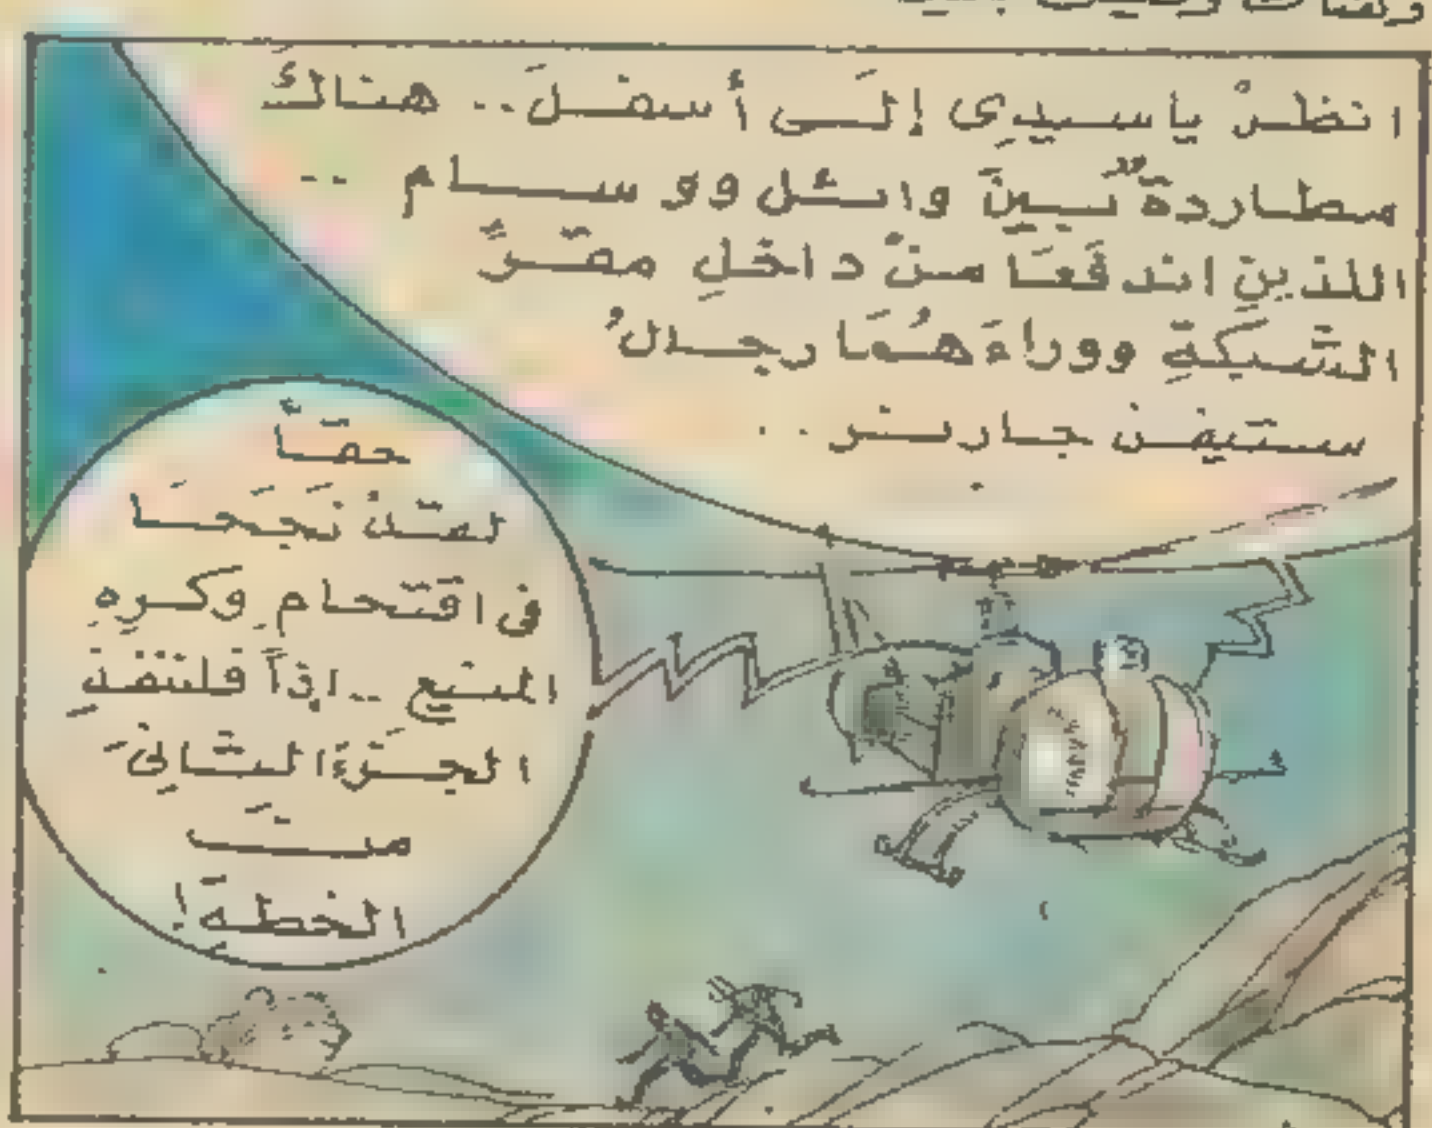 انظرْ ياسيدِى إلَى أسفلَ.. هناكَ
مطاردةٌ بَينَ وائل ووسام ..
اللذينِ اندفَعَا منْ داخلِ مقرِّ
الشَّبكةِ ووراءَهُمَا رجالُ
ستيفن جارنر..
حقّاً
لقدْ نَجَحَا
فى اقتحامِ وكرِهِ
المنيعِ .. إذاً فلننفذِ
الجزءَ الثَّانِىَ
منَ
الخطةِ!